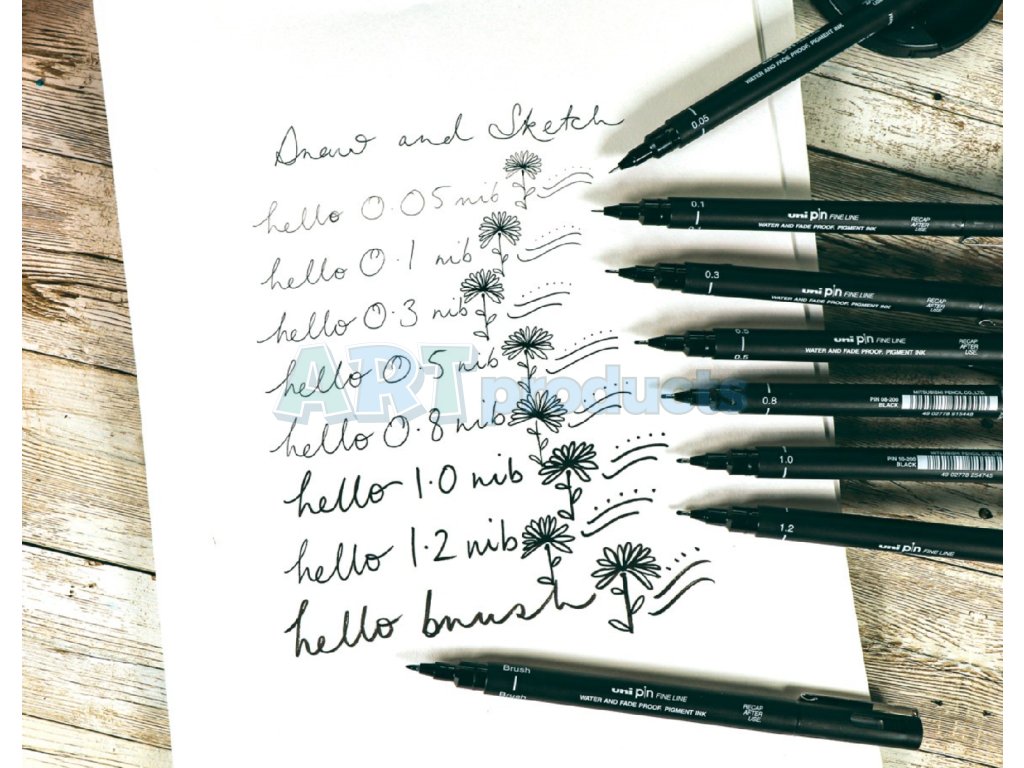 Draw and Sketch
hello 0.05 nib
hello 0.1 nib
hello 0.3 nib
hello 0.5 nib
hello 0.8 nib
hello 1.0 nib
hello 1.2 nib
hello brush
ART products
WATER AND FADE PROOF. PIGMENT INK
0.05
0.1
uni pin FINE LINE
WATER AND FADE PROOF. PIGMENT INK
RECAP
AFTER
USE.
0.3
uni pin FINE LINE
WATER AND FADE PROOF. PIGMENT INK
RECAP
AFTER
USE.
0.5
0.5
uni pin FINE LINE
WATER AND FADE PROOF. PIGMENT INK
RECAP
AFTER
USE.
0.8
MITSUBISHI PENCIL CO.,LTD.
PIN 08-200
BLACK
49 02778 915448
1.0
PIN 10-200
BLACK
49 02778 254745
1.2
uni pin FINE LINE
Brush
Brush
uni pin FINE LINE
WATER AND FADE PROOF. PIGMENT INK
RECAP
AFTER
USE.